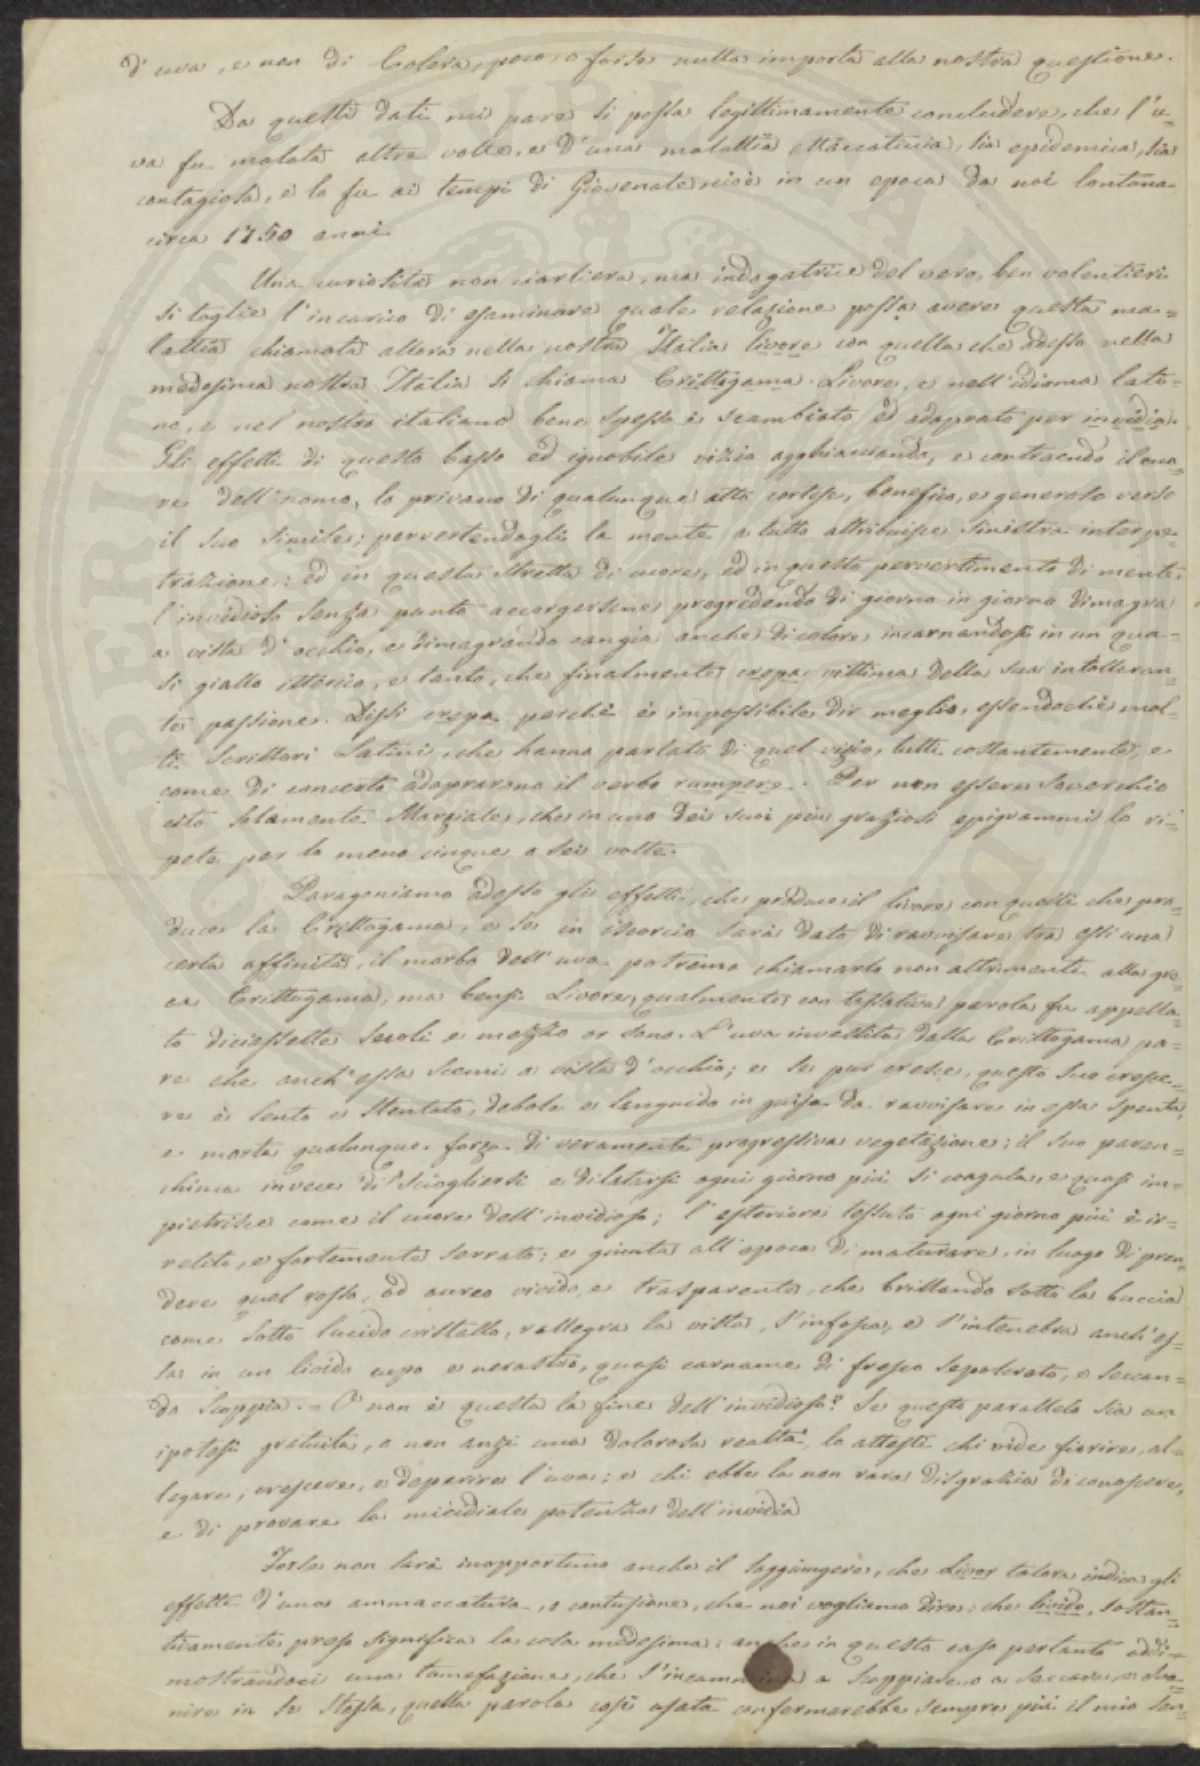 d'uva, e non di Colera, poco, o forse nulla importa alla nostra questione.
Da questi dati mi pare si possa legittimamente concludere, che l'u-
va fu malata altre volte, e d'una malattia attaccaticcia, sia epidemica, sia
contagiosa, e lo fu ai tempi di Giovenale, cioè in un epoca da noi lontana
circa 1750 anni.
Una curiosità non ciarliera, ma indagatrice del vero, ben volentieri
si toglie l'incarico di esaminare quale relazione possa avere questa ma-
lattia chiamata allora nella nostra Italia livore con quella che adesso nella
medesima nostra Italia si chiama Crittogama. Livore, e nell'idioma lati-
no, e nel nostro italiano bene spesso è scambiato ed adoprato per invidia.
Gli effetti di questo basso ed ignobile vizio agghiacciando, e contraendo il cuo-
re dell'uomo, lo privano di qualunque atto cortese, benefico, e generoso verso
il suo simile; pervertendogli la mente a tutto attribuisce sinistra interpe-
trazione: ed in questa stretta di cuore, ed in questo pervertimento di mente
l'invidioso senza punto accorgersene progredendo di giorno in giorno dimagra
a vista d'occhio, e dimagrando cangia anche di colore incarnandosi in un qua-
si giallo itterico, e tanto, che finalmente crepa vittima della sua intolleran-
te passione. Dissi crepa perchè è impossibile dir meglio, essendochè mol-
ti Scrittori Latini, che hanno parlato di quel vizio, tutti costantemente, e
come di concerto adoprarono il verbo rumpere. Per non essere soverchio
cito solamente Marziale, che in uno dei suoi più graziosi epigrammi lo ri-
pete per lo meno cinque o sei volte.
Paragoniamo adesso gli effetti, che produce il livore con quelli che pro-
duce la Crittogama, e se in iscorcio sarà dato di ravvisare tra essi una
certa affinità, il morbo dell'uva potremo chiamarlo non altrimenti alla gre-
ca Crittogama, ma bensì Livore, qualmente con parola fu appella-
to diciessette secoli e mezzo or sono. L'uva investita dalla Crittogama pa-
re che anch'essa scemi a vista d'occhio; e se pur cresce, questo suo cresce-
re è lento e stentato, debole e languido in guisa da ravvisare in essa spenta,
e morta qualunque forza di veramente progressiva vegetazione; il suo paren-
chima invece di sciogliersi e dilatarsi ogni giorno più si coagula, e quasi im-
pietrisce come il cuore dell'invidioso; l'esteriore tessuto ogni giorno più è ir-
retito, e fortemente serrato; e giunta all'epoca di maturare, in luogo di pren-
dere quel rosso, od aureo vivido, e trasparente, che brillando sotto la buccia
come sotto lucido cristallo, rallegra la vista, s'infosca, e s'intenebra anch'es-
sa in un livido cupo e nerastro, quasi carname di fresco sepolcrato, e seccan-
do scoppia. = O non è questa la fine dell'invidioso? Se questo parallelo sia un
ipotesi gratuita, o non anzi una dolorosa realtà, lo attesti chi vide fiorire, al-
legare, crescere, e deperire l'uva; e chi ebbe la non rara disgrazia di conoscere,
e di provare la micidiale potenza dell'invidia.
Forse non sarà inopportuno anche il soggiungere, che Livor talora indica gli
effetti d'una ammaccatura, o contusione, che noi vogliamo dire; che livido, sostan-
tivamente preso significa la cosa medesima: anche in questo caso pertanto addi-
mostrandoci una tumefazione, che s'incammina a scoppiare o a seccare, e sva-
nire in se stessa, quella parola così usata confermerebbe sempre più il mio sen-